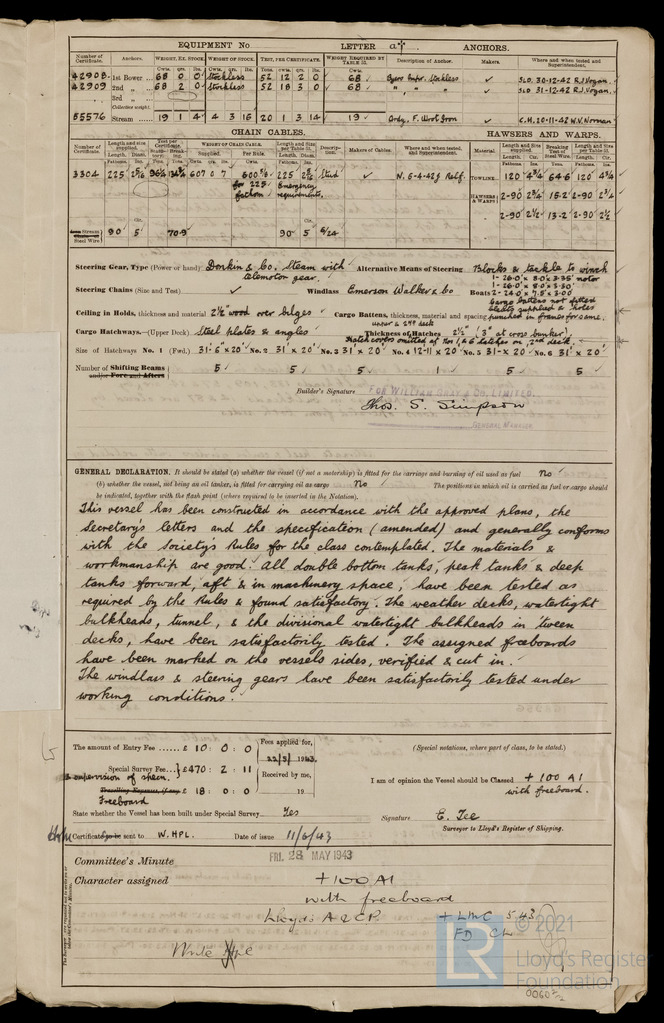 EQUIPMENT No LETTER a† ANCHORS.
Number of Certificate. Anchors. WEIGHT, EX. STOCK. WEIGHT OF STOCK. TEST, PER CERTIFICATE. WEIGHT REQUIRED BY TABLE 31. Description of Anchor. Makers. Where and when tested and Superintendent.
42908. 1st Bower ... 68 0 0 Stockless 52 12 2 0 68 Byers Impr. Stockless ✓ SLD. 30-12-42 R.J. Vogan.
42909 2nd „ ... 68 2 0 Stockless 52 18 3 0 68 „ „ „ ✓ SLD 31-12-42 R.J. Vogan.
3rd „ ...
Collective weight.
55576 Stream ... 19 1 4 4 3 16 20 1 3 14 19 Ordy. F. Wrot Iron ✓ C.H. 20-11-42 W.V. Norman
CHAIN CABLES. HAWSERS AND WARPS.
Number of Certificate. Length and size supplied. Test per Certificate. WEIGHT OF CHAIN CABLE. Length and size per Table 31. Description. Makers of Cables. Where and when tested, and Superintendent. Material. Length and size supplied. Breaking Test of Steel Wire. Length and size per Table 31.
3304 225 2 5/8 607 0 7 600 3/4 225 2 5/8 Stud ✓ N. 6-4-42 TOWLINE. 120 4 3/4 64·6 120 4 3/4
for 225 fathom Emergency requirements. HAWSERS & WARPS 2-90 2 3/4 15·2 2-90 2 3/4
2-90 2 1/2 13·2 2-90 2 1/2
Steel Wire 90 5 70·9 90 5 6/24
Steering Gear, Type (Power or hand) Donkin & Co. Steam with telemotor gear. Alternative Means of Steering Blocks & tackle to winch
Steering Chains (Size and Test) ✓ Windlass Emerson Walker & Co Boats 1-26·0 x 8·0 x 3·35 motor
1-26·0 x 8·0 x 3·30
2-24·0 x 7·5 x 3·00
Ceiling in Holds, thickness and material 2½" wood over bilges Cargo Battens, thickness, material and spacing Cargo battens not fitted cleats supplied & holes punched in frames for same.
Cargo Hatchways.—(Upper Deck) Steel plates & angles Thickness of Hatches upper & 2nd deck 2½" (3" at cross bunker).
Hatch covers omitted at Nos 1 & 6 hatches on 2nd deck.
Size of Hatchways No. 1 (Fwd.) 31'·6" x 20' No. 2 31' x 20' No. 3 31' x 20' No. 4 12'-11 x 20' No. 5 31'-x 20' No. 6 31' x 20'
Number of Shifting Beams and/or Fore and Afters 5 5 5 1 5 5
Builder's Signature FOR WILLIAM GRAY & CO. LIMITED.
Thos. S. Simpson
GENERAL MANAGER
GENERAL DECLARATION. It should be stated (a) whether the vessel (if not a motorship) is fitted for the carriage and burning of oil used as fuel No
(b) whether the vessel, not being an oil tanker, is fitted for carrying oil as cargo No The positions in which oil is carried as fuel or cargo should
be indicated, together with the flash point (where required to be inserted in the Notation).
This vessel has been constructed in accordance with the approved plans, the
Secretary's letters and the specification (amended) and generally conforms
with the Society's Rules for the class contemplated. The materials &
workmanship are good. All double bottom tanks, peak tanks & deep
tanks forward, aft & in machinery space, have been tested as
required by the Rules & found satisfactory. The weather decks, watertight
bulkheads, tunnel, & the divisional watertight bulkheads in 'tween
decks, have been satisfactorily tested. The assigned freeboards
have been marked on the vessels sides, verified & cut in.
The windlass & steering gears have been satisfactorily tested under
working conditions.
The amount of Entry Fee ...... £ 10 : 0 : 0 Fees applied for, 22/5/1943. (Special notations, where part of class, to be stated.)
Special Survey Fee... £470 : 2 : 11 Received by me,
& supervision of specn.
Travelling Expenses, if any £ 18 : 0 : 0 19
Freeboard
I am of opinion the Vessel should be Classed + 100 A1
with freeboard.
State whether the Vessel has been built under Special Survey Yes
Signature E. Tee
Surveyor to Lloyd's Register of Shipping.
Certificate to be sent to W. HPL. Date of issue 11/6/43
Committee's Minute FRI. 28 MAY 1943
Character assigned +100 A1
with freeboard
Lloyds A & CP + LMC 5 43
FD CL
Write
© 2021
LR
Lloyd's Register
Foundation